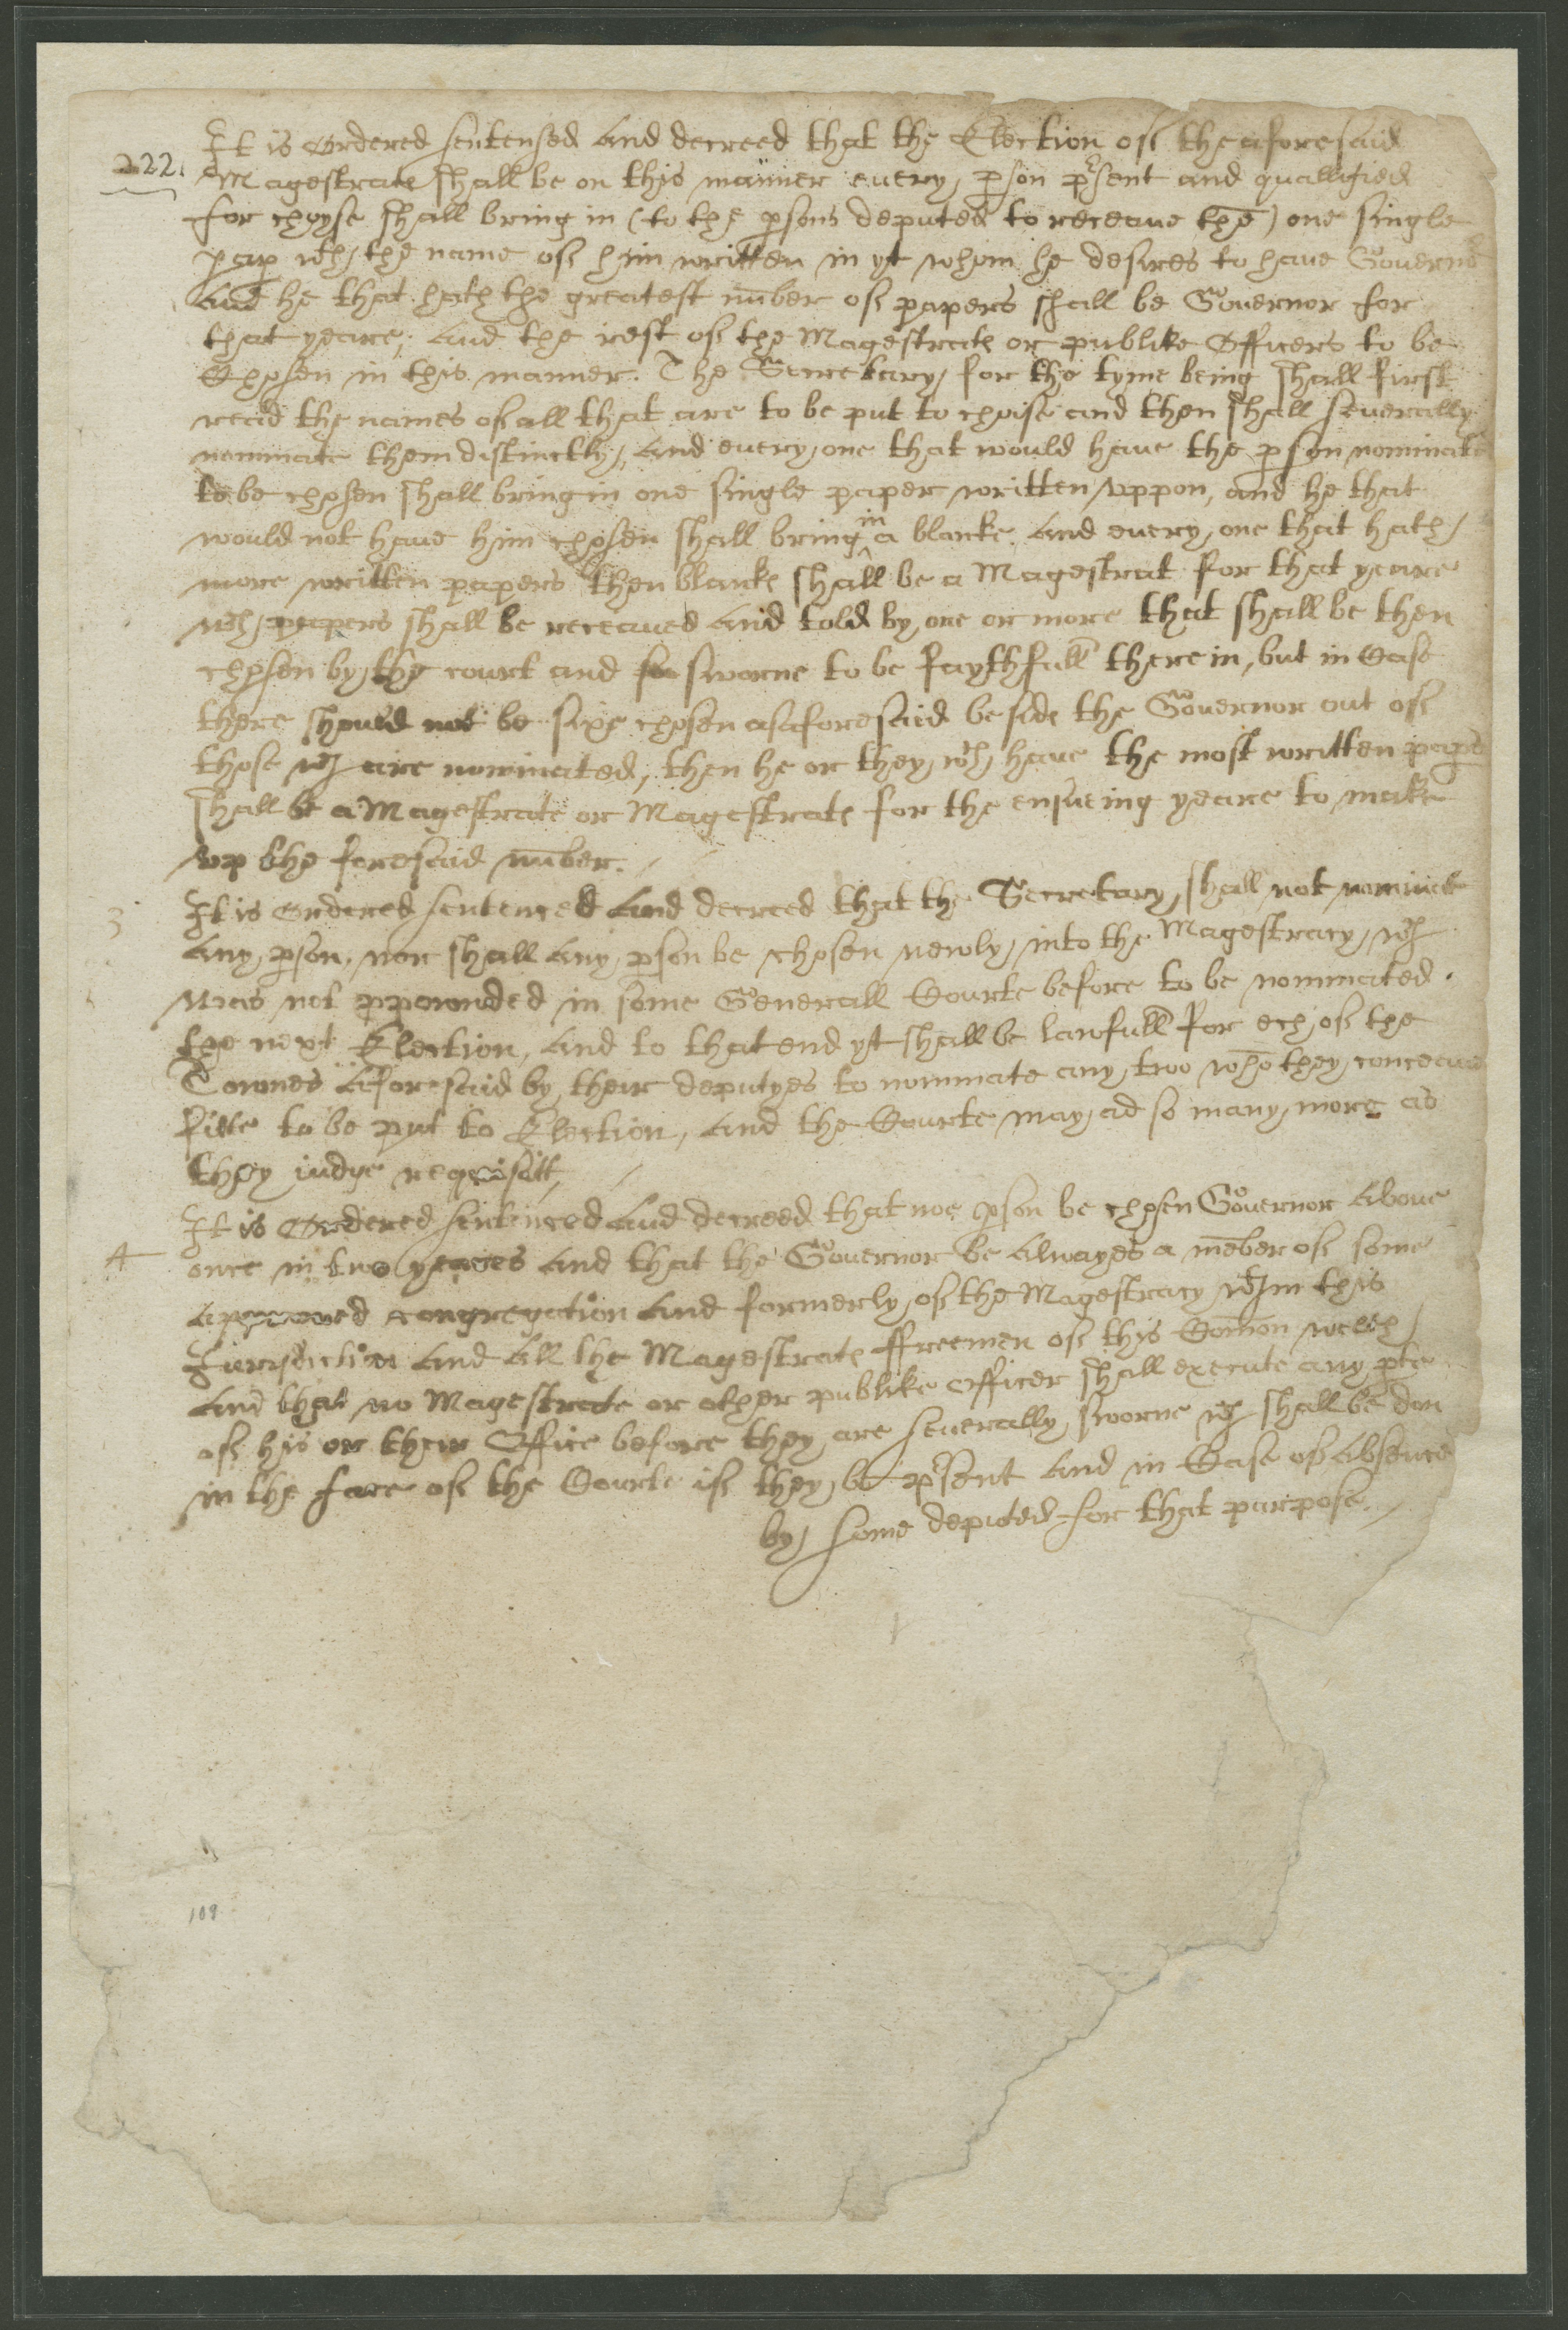 It is Ordered sentensed and decreed that the Election of the aforesaid
222. Magestrats shall be on this manner euery p̱son p̱rsent and quallified
for choyse shall bring in (to the p̱sons deputed to receaue thē) one single
pap̱ wth the name of him written in yt whom he desires to haue Gouernor
And he that hath the greatest nūber of papers shall be Gouernor for
that yeare; And the rest of the Magestrats or publike Officers to be
Chosen in this manner. The Secretary for the tyme being shall first
read the names of all that are to be put to choise and then shall seuerally
nominate them distinctly, And euery one that would haue the p̱son nominate
to be chosen shall bring in one single paper written vppon, and he that
would not haue him chosen shall bring in a blanke, And euery one that hath
more written papers then blanks shall be a Magestrat for that yeare
wch papers shall be receaued and told by one or more that shall be then
chosen by the court and sworne to be faythfull therein, but in Case
there should not be sixe chosen as aforesaid beside the Gouernor out of
those wch are nominated, then he or they wch haue the most written paprs
shall be a Magestrate or Magestrats for the ensueing yeare to make
vp the foresaid nūber.
3 It is Ordered sentenced and decreed that the Secretary shall not nominate
any p̱son, nor shall any p̱son be chosen newly into the Magestracy wch
was not p̱pownded in some Generall Courte before to be nominated
the next Election, And to that end yt shall be lawfull for ech of the
Townes aforesaid by their deputyes to nominate any two whō they conceaue
fitte to be put to Election, And the Courte may ad so many more as
they iudge requisitt,
It is Ordered sentenced and decreed that noe p̱son be chosen Gouernor aboue
4 once in two yeares and that the Gouernor be alwayes a mēber of some
approved congregation and formerly of the Magestracy wthin this
Jurisdiction and all the Magestrats ffreemen of this Comōn welth
And that no Magestrate or other publike officer shall execute any p̱te
of his or their Office before they are seuerally sworne wch shall be don
in the face of the Courte if they be p̱rsent And in Case of absence
by some deputed for that purpose.
109